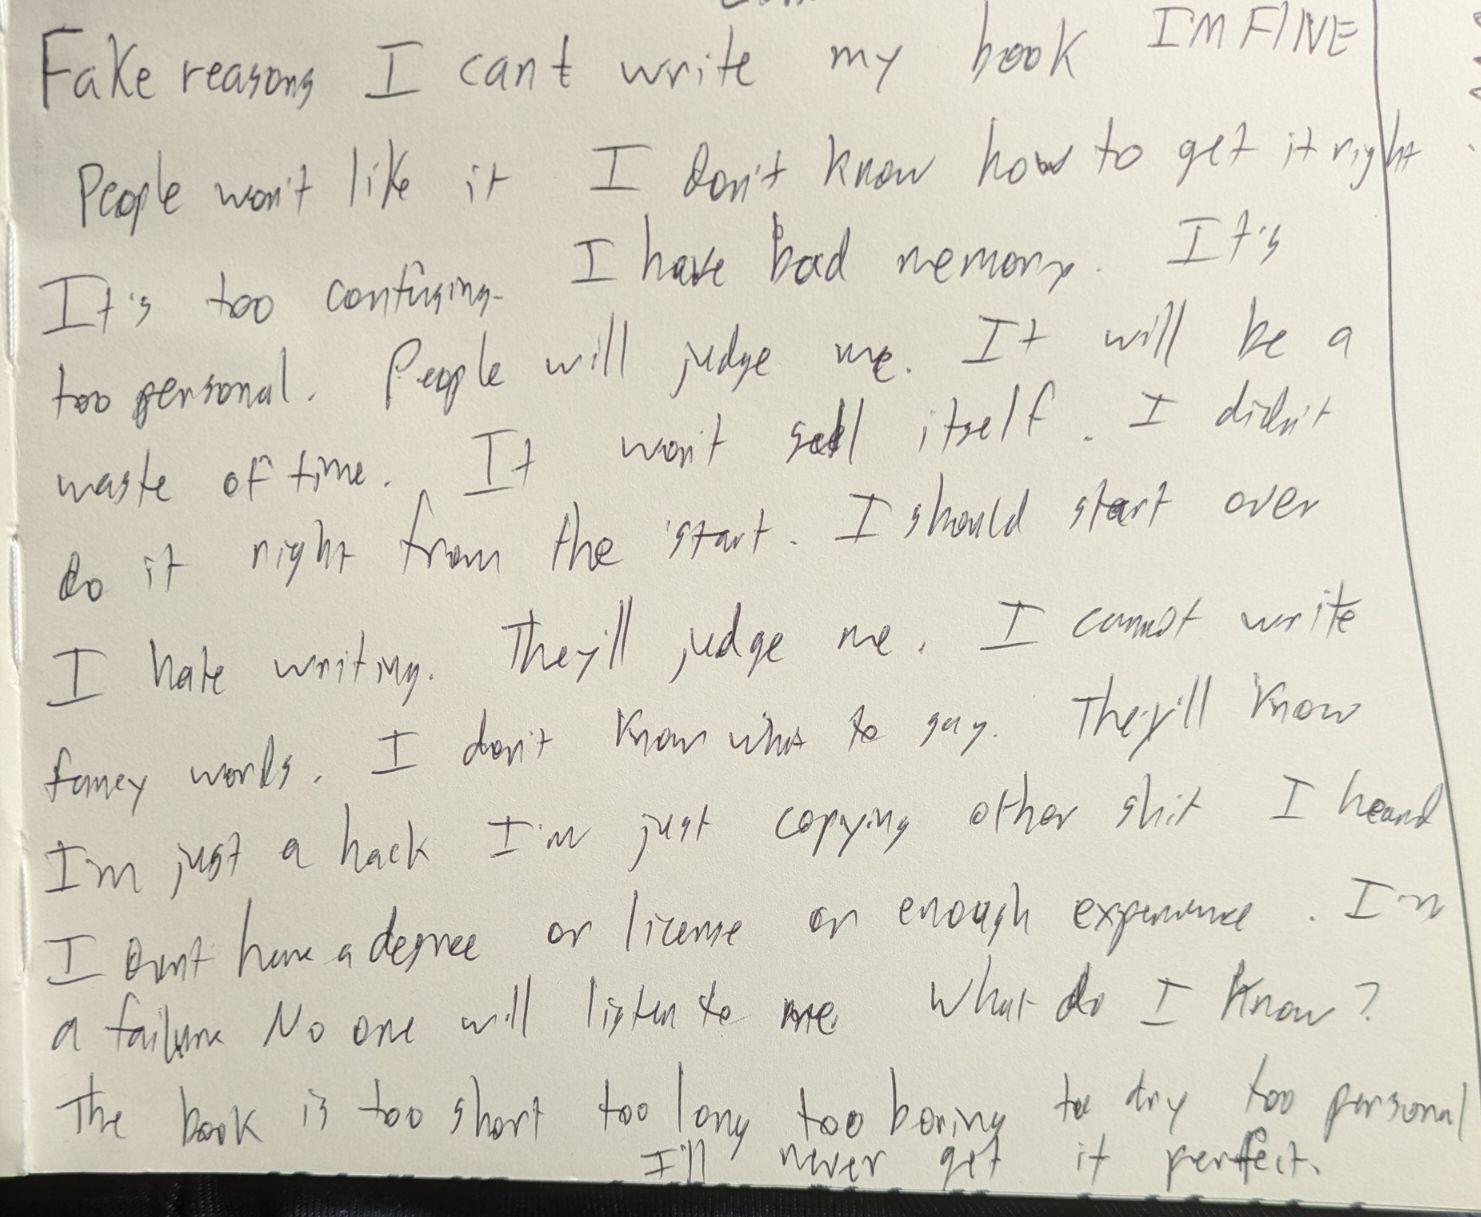 Fake reasons I cant write my book IM FINE
People won't like it I don't know how to get it right
It's too confusing. I have bad memory. It's
too personal. People will judge me. It will be a
waste of time. It won't sell itself. I didn't
do it right from the start. I should start over
I hate writing. They'll judge me. I cannot write
fancy words. I don't know what to say. They'll know
I'm just a hack I'm just copying other shit I heard
I dont have a degree or license or enough experience. I'm
a failure No one will listen to me What do I know?
The book is too short too long too boring to dry too personal
I'll never get it perfect.